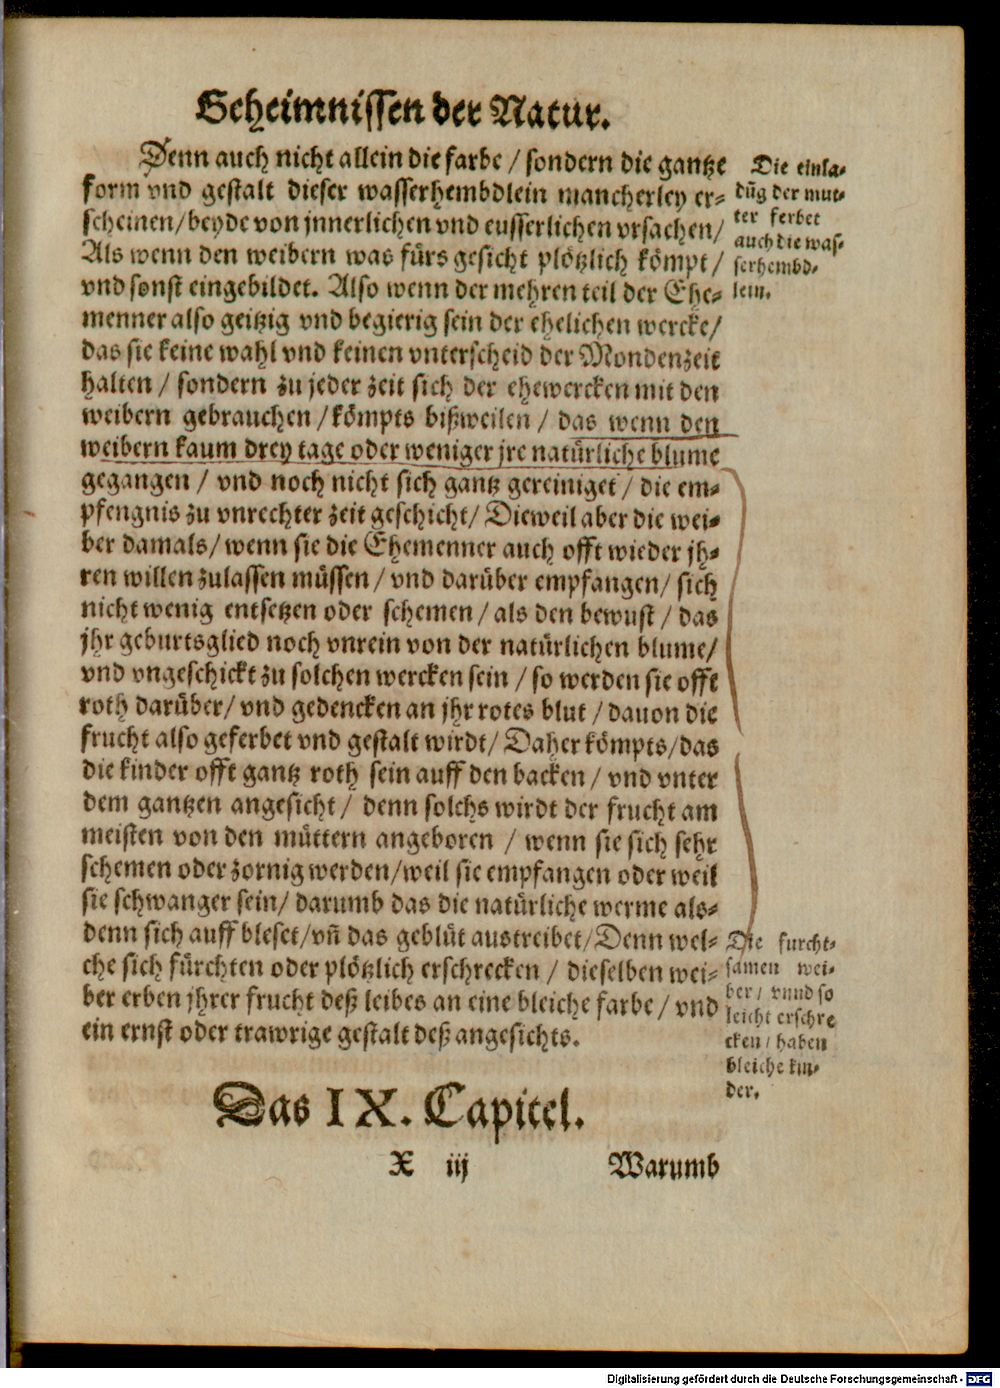 Geheimnissen der Natur.
Denn auch nicht allein die farbe / sondern die gantze
form vnd gestalt dieser wasserhembdlein mancherley er-
scheinen/beyde von jnnerlichen vnd eusserlichen vrsachen/
Als wenn den weibern was fürs gesicht plötzlich kömpt /
vnd sonst eingebildet. Also wenn der mehren teil der Ehe-
menner also geitzig vnd begierig sein der ehelichen wercke/
das sie keine wahl vnd keinen vnterscheid der Mondenzeit
halten / sondern zu jeder zeit sich der ehewercken mit den
weibern gebrauchen /kömpts bißweilen / das wenn den
weibern kaum drey tage oder weniger jre natürliche blume
gegangen / vnd noch nicht sich gantz gereiniget / die em-
pfengnis zu vnrechter zeit geschicht/ Dieweil aber die wei-
ber damals/ wenn sie die Ehemenner auch offt wieder jh-
ren willen zulassen müssen / vnd darüber empfangen/ sich
nicht wenig entsetzen oder schemen / als den bewust / das
jhr geburtsglied noch vnrein von der natürlichen blume/
vnd vngeschickt zu solchen wercken sein / so werden sie offt
roth darüber/ vnd gedencken an jhr rotes blut / dauon die
frucht also geferbet vnd gestalt wirdt/ Daher kömpts/das
die kinder offt gantz roth sein auff den backen / vnd vnter
dem gantzen angesicht / denn solchs wirdt der frucht am
meisten von den müttern angeboren / wenn sie sich sehr
schemen oder zornig werden/weil sie empfangen oder weil
sie schwanger sein/ darumb das die natürliche werme als-
denn sich auff bleset/vn̄ das geblüt austreibet/Denn wel-
che sich fürchten oder plötzlich erschrecken / dieselben wei-
ber erben jhrer frucht deß leibes an eine bleiche farbe / vnd
ein ernst oder trawrige gestalt deß angesichts.
Die einla-
dūg der mut-
ter ferbet
auch die was-
serhembd-
lein.
Die furcht-
samen wei-
ber / vnnd so
leicht erschre
cken / haben
bleiche kin-
der.
Das IX. Capitel.
X iij
Warumb
Digitalisierung gefördert durch die Deutsche Forschungsgemeinschaft - DFG